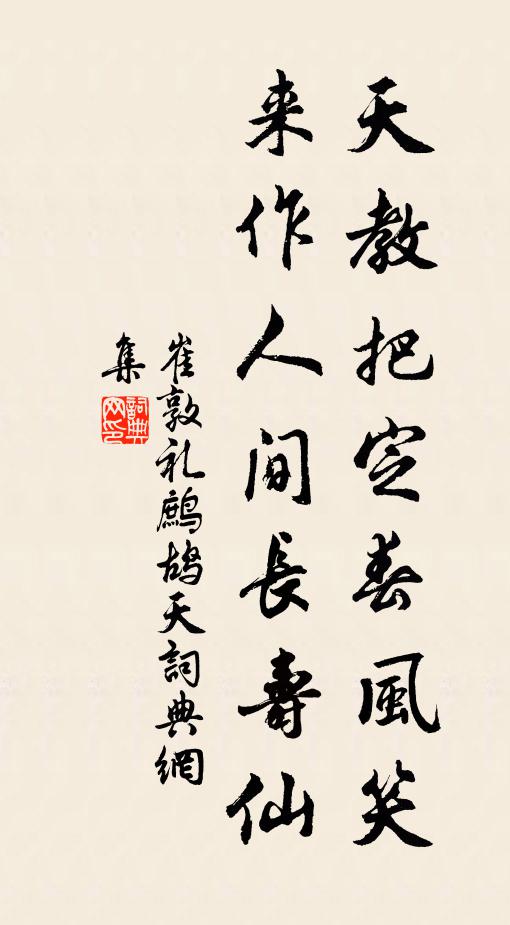 天教把定春風笑
来作人間長壽仙
崔敦礼鷓鴣天詞典網
集
詞典網印